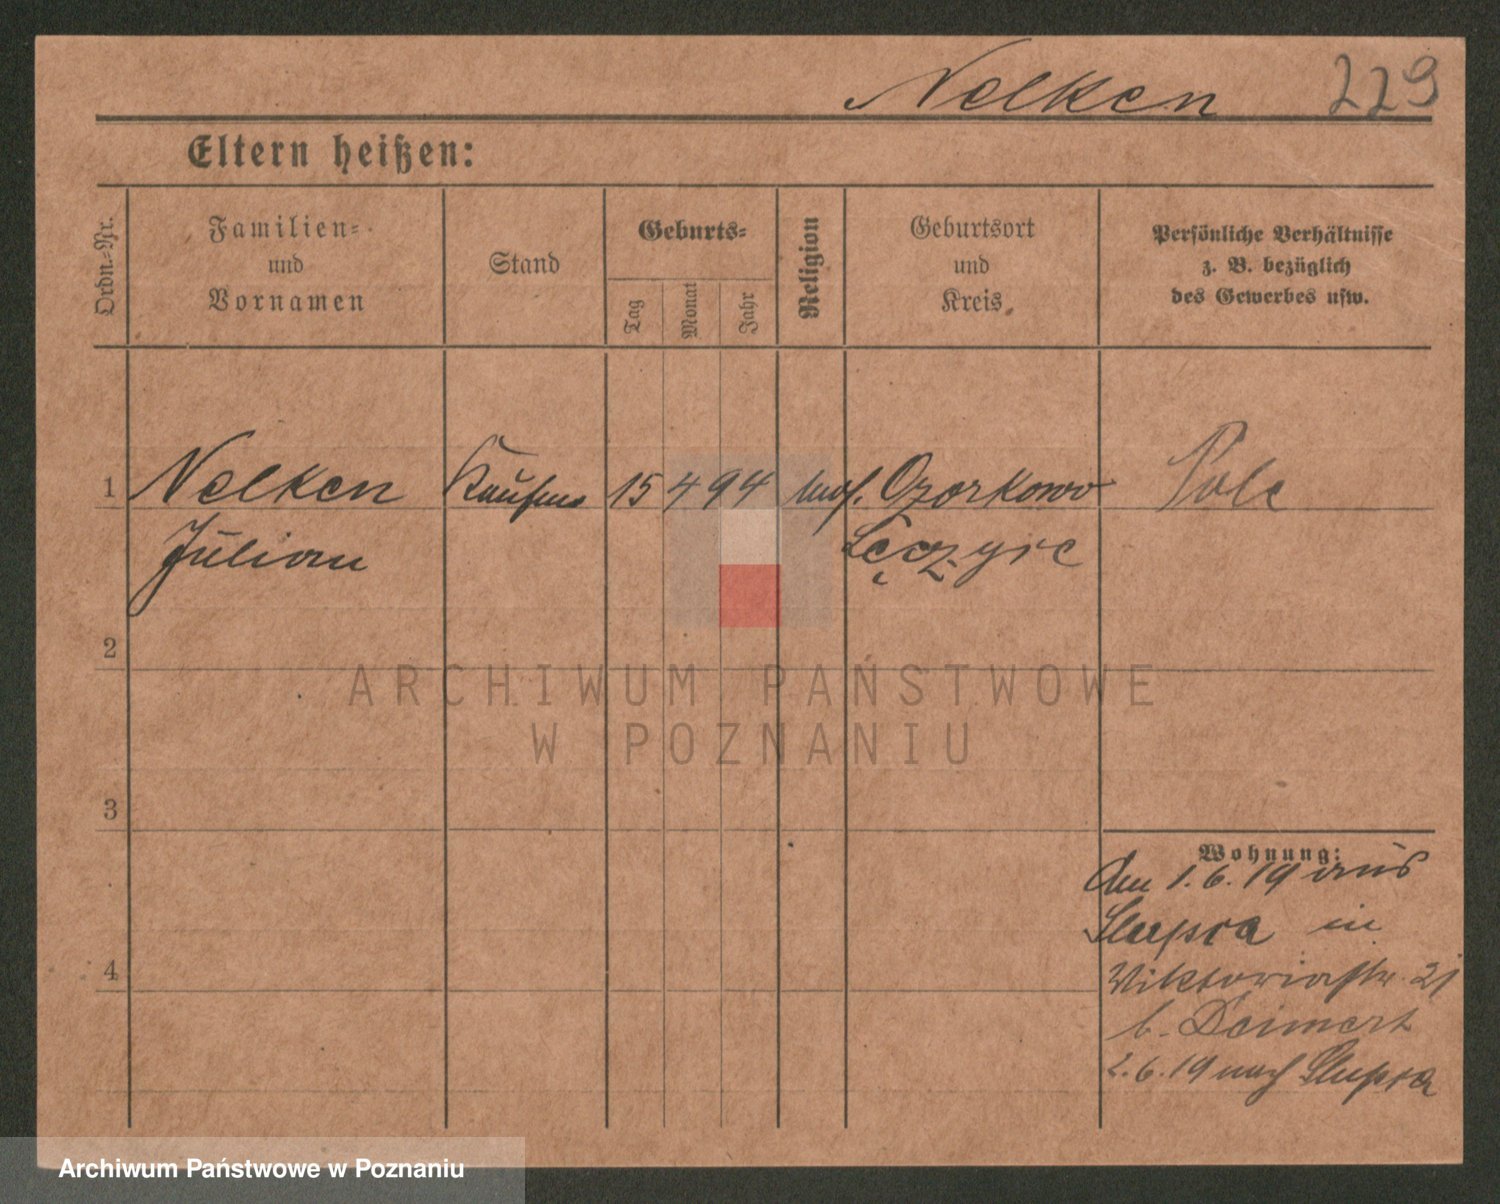 Nelken 229
Eltern heißen:
Ordn.-Nr.
Familien-
und
Vornamen
Stand
Geburts-
Tag
Monat
Jahr
Religion
Geburtsort
und
Kreis
Persönliche Verhältnisse
z. B. bezüglich
des Gewerbes usw.
1 Nelken Kaufm 15 4 94 mos. Ozorkowo Pole
Julian Łęczyce
2
ARCHIWUM PAŃSTWOWE
W POZNANIU
3
Wohnung:
Am 1.6.19 aus
Slupca in
4
Viktoriastr. 21
b. Deimert
2.6.19 nach Slupca
Archiwum Państwowe w Poznaniu